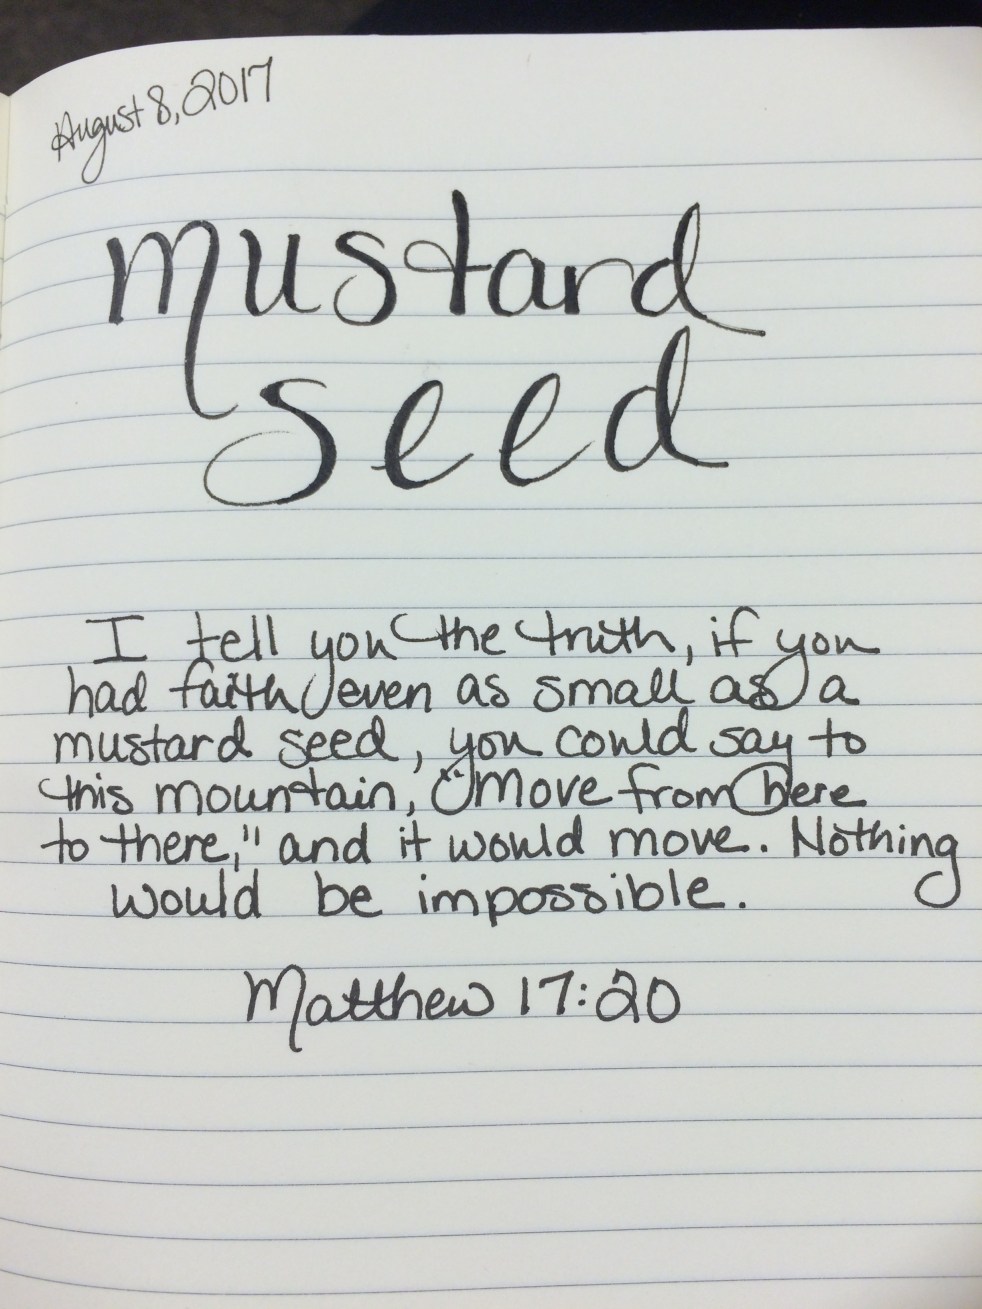 August 8, 2017
mustard
seed
I tell you the truth, if you
had faith even as small as a
mustard seed, you could say to
this mountain, "Move from here
to there," and it would move. Nothing
would be impossible.
Matthew 17:20